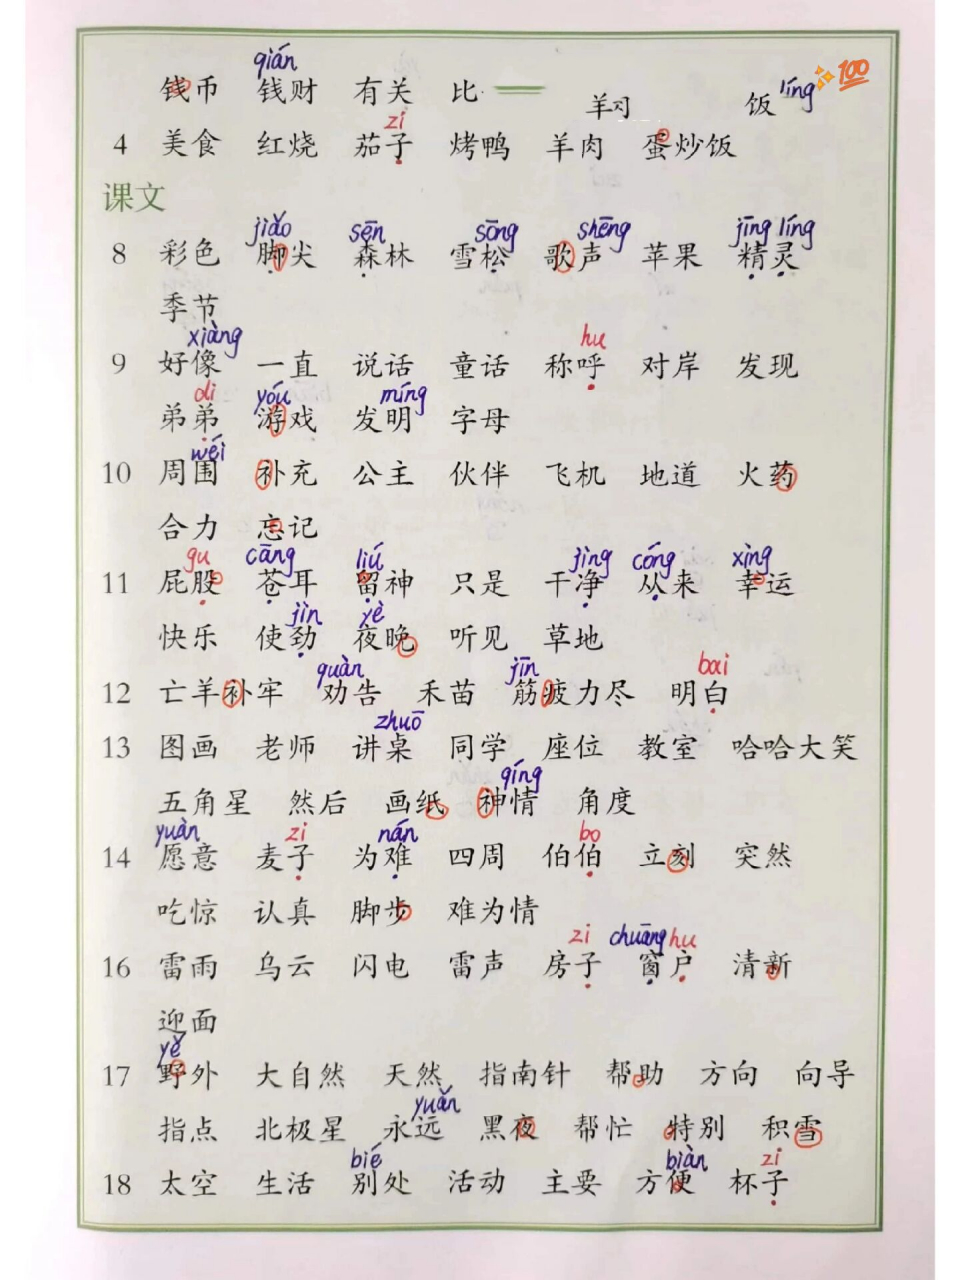 qián
钱币 钱财 有关 比
羊习 饭 líng 100
zi
4 美食 红烧 茄子 烤鸭 羊肉 蛋炒饭
课文
jiǎo sēn sōng shēng jīng líng
8 彩色 脚尖 森林 雪松 歌声 苹果 精灵
季节
xiàng hu
9 好像 一直 说话 童话 称呼 对岸 发现
di yóu míng
弟弟 游戏 发明 字母
wéi
10 周围 补充 公主 伙伴 飞机 地道 火药
合力 忘记
gu cāng liú jìng cóng xìng
11 屁股 苍耳 留神 只是 干净 从来 幸运
jìn yè
快乐 使劲 夜晚 听见 草地
quàn jīn bai
12 亡羊补牢 劝告 禾苗 筋疲力尽 明白
zhuō
13 图画 老师 讲桌 同学 座位 教室 哈哈大笑
qíng
五角星 然后 画纸 神情 角度
yuàn zi nán bo
14 愿意 麦子 为难 四周 伯伯 立刻 突然
吃惊 认真 脚步 难为情
zi chuāng hu
16 雷雨 乌云 闪电 雷声 房子 窗户 清新
迎面
yě
17 野外 大自然 天然 指南针 帮助 方向 向导
yuǎn
指点 北极星 永远 黑夜 帮忙 特别 积雪
bié biàn zi
18 太空 生活 别处 活动 主要 方便 杯子